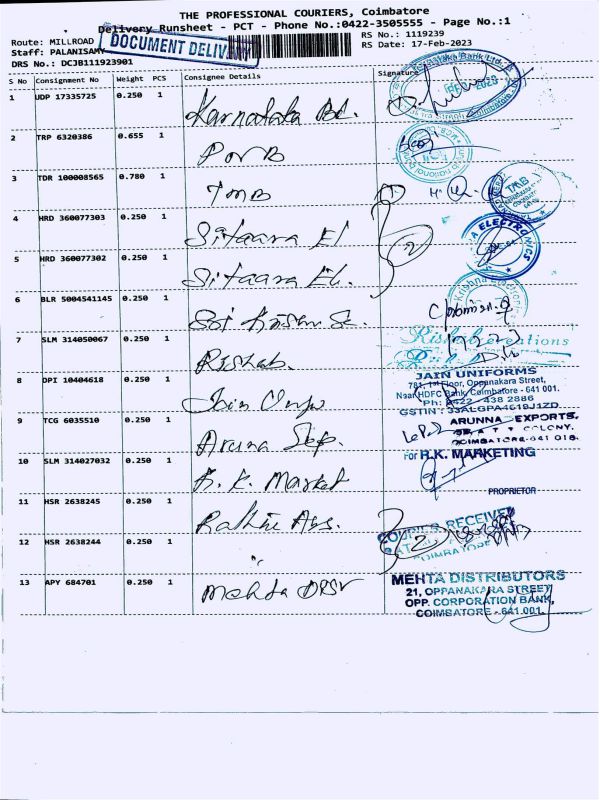 THE PROFESSIONAL COURIERS, Coimbatore
Delivery Runsheet - PCT - Phone No.:0422-3505555 - Page No.:1
Route: MILLROAD
RS No.: 1119239
Staff: PALANISAMY
RS Date: 17-Feb-2023
DOCUMENT DELIVERY
DRS No.: DCJB111923901
S No Consignment No Weight PCS Consignee Details Signature
1 UDP 17335725 0.250 1 Karnataka Bk.
2 TRP 6320386 0.655 1
3 TDR 100008565 0.780 1 TMB
TMB
4 HRD 360077303 0.250 1 Sitaara El
ELECTRONICS
5 HRD 360077302 0.250 1 Sitaara El.
6 BLR 5004541145 0.250 1
Krishna Electronic
7 SLM 314050067 0.250 1 Rishab.
Rishab Creations
8 DPI 10404618 0.250 1 Jain
JAIN UNIFORMS
781, 1st Floor, Oppanakara Street,
Near HDFC Bank, Coimbatore - 641 001.
Ph: 0422 - 438 2886
GSTIN :
9 TCG 6035510 0.250 1 Aruna Exp.
ARUNNA EXPORTS.
COLONY,
COIMBATORE-641 018.
10 SLM 314027032 0.250 1 R. K. Market
For R.K. MARKETING
PROPRIETOR
11 HSR 2638245 0.250 1 Rathi
COURIER RECEIVED
12 HSR 2638244 0.250 1 "
COIMBATORE
13 APY 684701 0.250 1 Mehta
MEHTA DISTRIBUTORS
21, OPPANAKARA STREET
OPP. CORPORATION BANK,
COIMBATORE - 641 001.